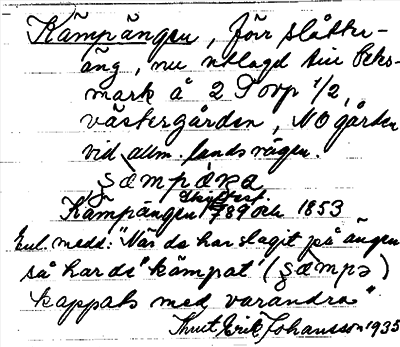 Kämpängen, förr slåtter-
äng, nu utlagd till beks-
mark å 2 Torp 1/2,
västergården, NO gården
vid allm. landsvägen.
Kämpängen 1789 och 1853
Enl. medd: "När de har slagit på ängen
så har de "kämpat" (
kappats med varandra"
Knut Erik Johansson 1935